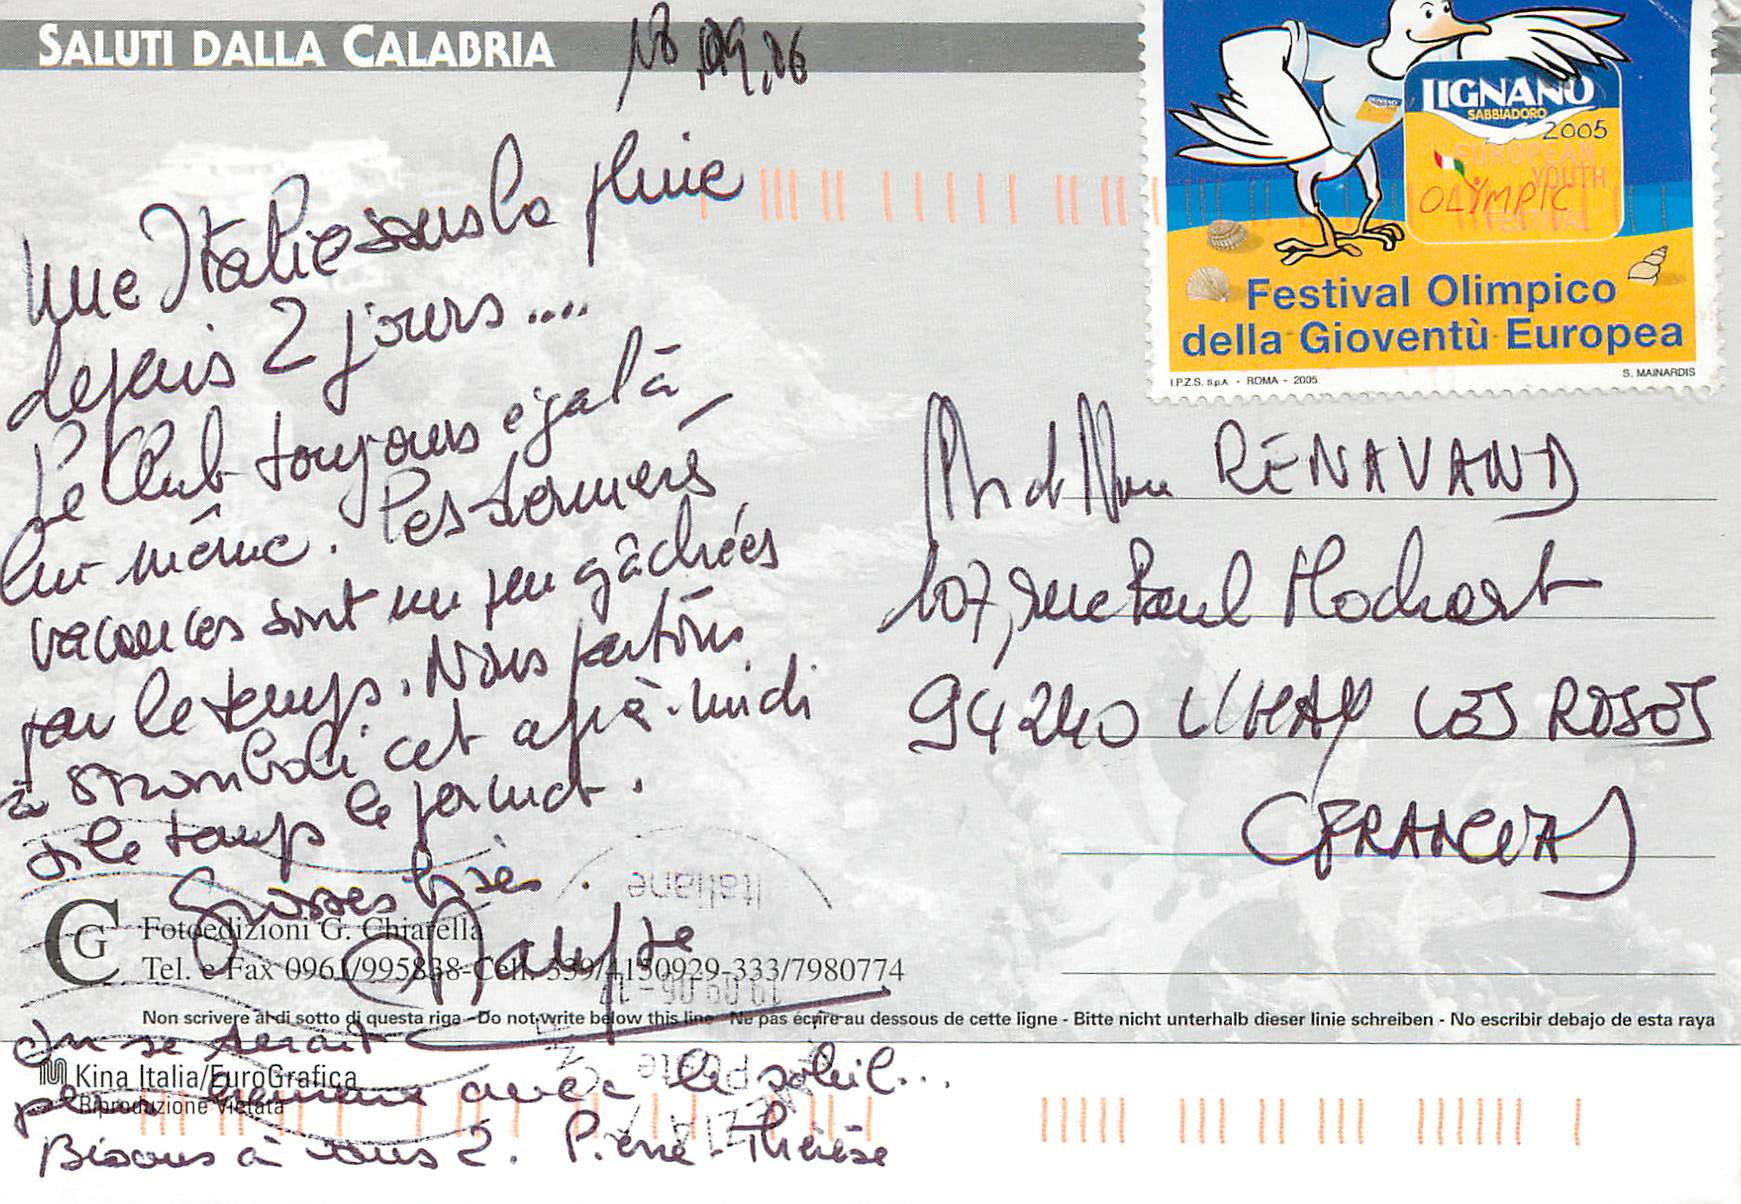 SALUTI DALLA CALABRIA
18.09.06
Une Italie sous la pluie
depuis 2 jours ....
Le Club toujours égal à
lui même. Les dernières
vacances sont un peu gâchées
par le temps. Nous partons
à Stromboli cet après-midi
si le temps le permet.
Grosses bises.
On se serait
avec le soleil...
Bisous à vous 2. Pierre-Thérèse
LIGNANO
SABBIADORO
2005
EUROPEAN
YOUTH
OLYMPIC
FESTIVAL
Festival Olimpico
della Gioventù Europea
I.P.Z.S. S.p.A. - ROMA - 2005
S. MAINARDIS
Mr et Mme RENAVAND
107, rue Paul Hochart
94240 L'HAY LES ROSES
(FRANCIA)
CG
Fotoedizioni G. Chiarella
Tel. e Fax 0961/995838-Cell. 339/4150929-333/7980774
Non scrivere al di sotto di questa riga - Do not write below this line - Ne pas écrire au dessous de cette ligne - Bitte nicht unterhalb dieser linie schreiben - No escribir debajo de esta raya
Kina Italia/EuroGrafica
Riproduzione vietata
Italiane
19.09.06-17